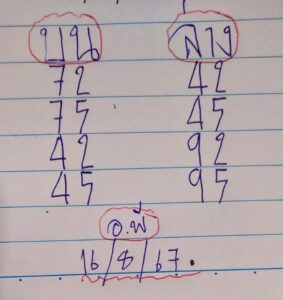 บน ล่าง
72 42
75 45
42 92
45 95
อ.พี่
16/8/67.